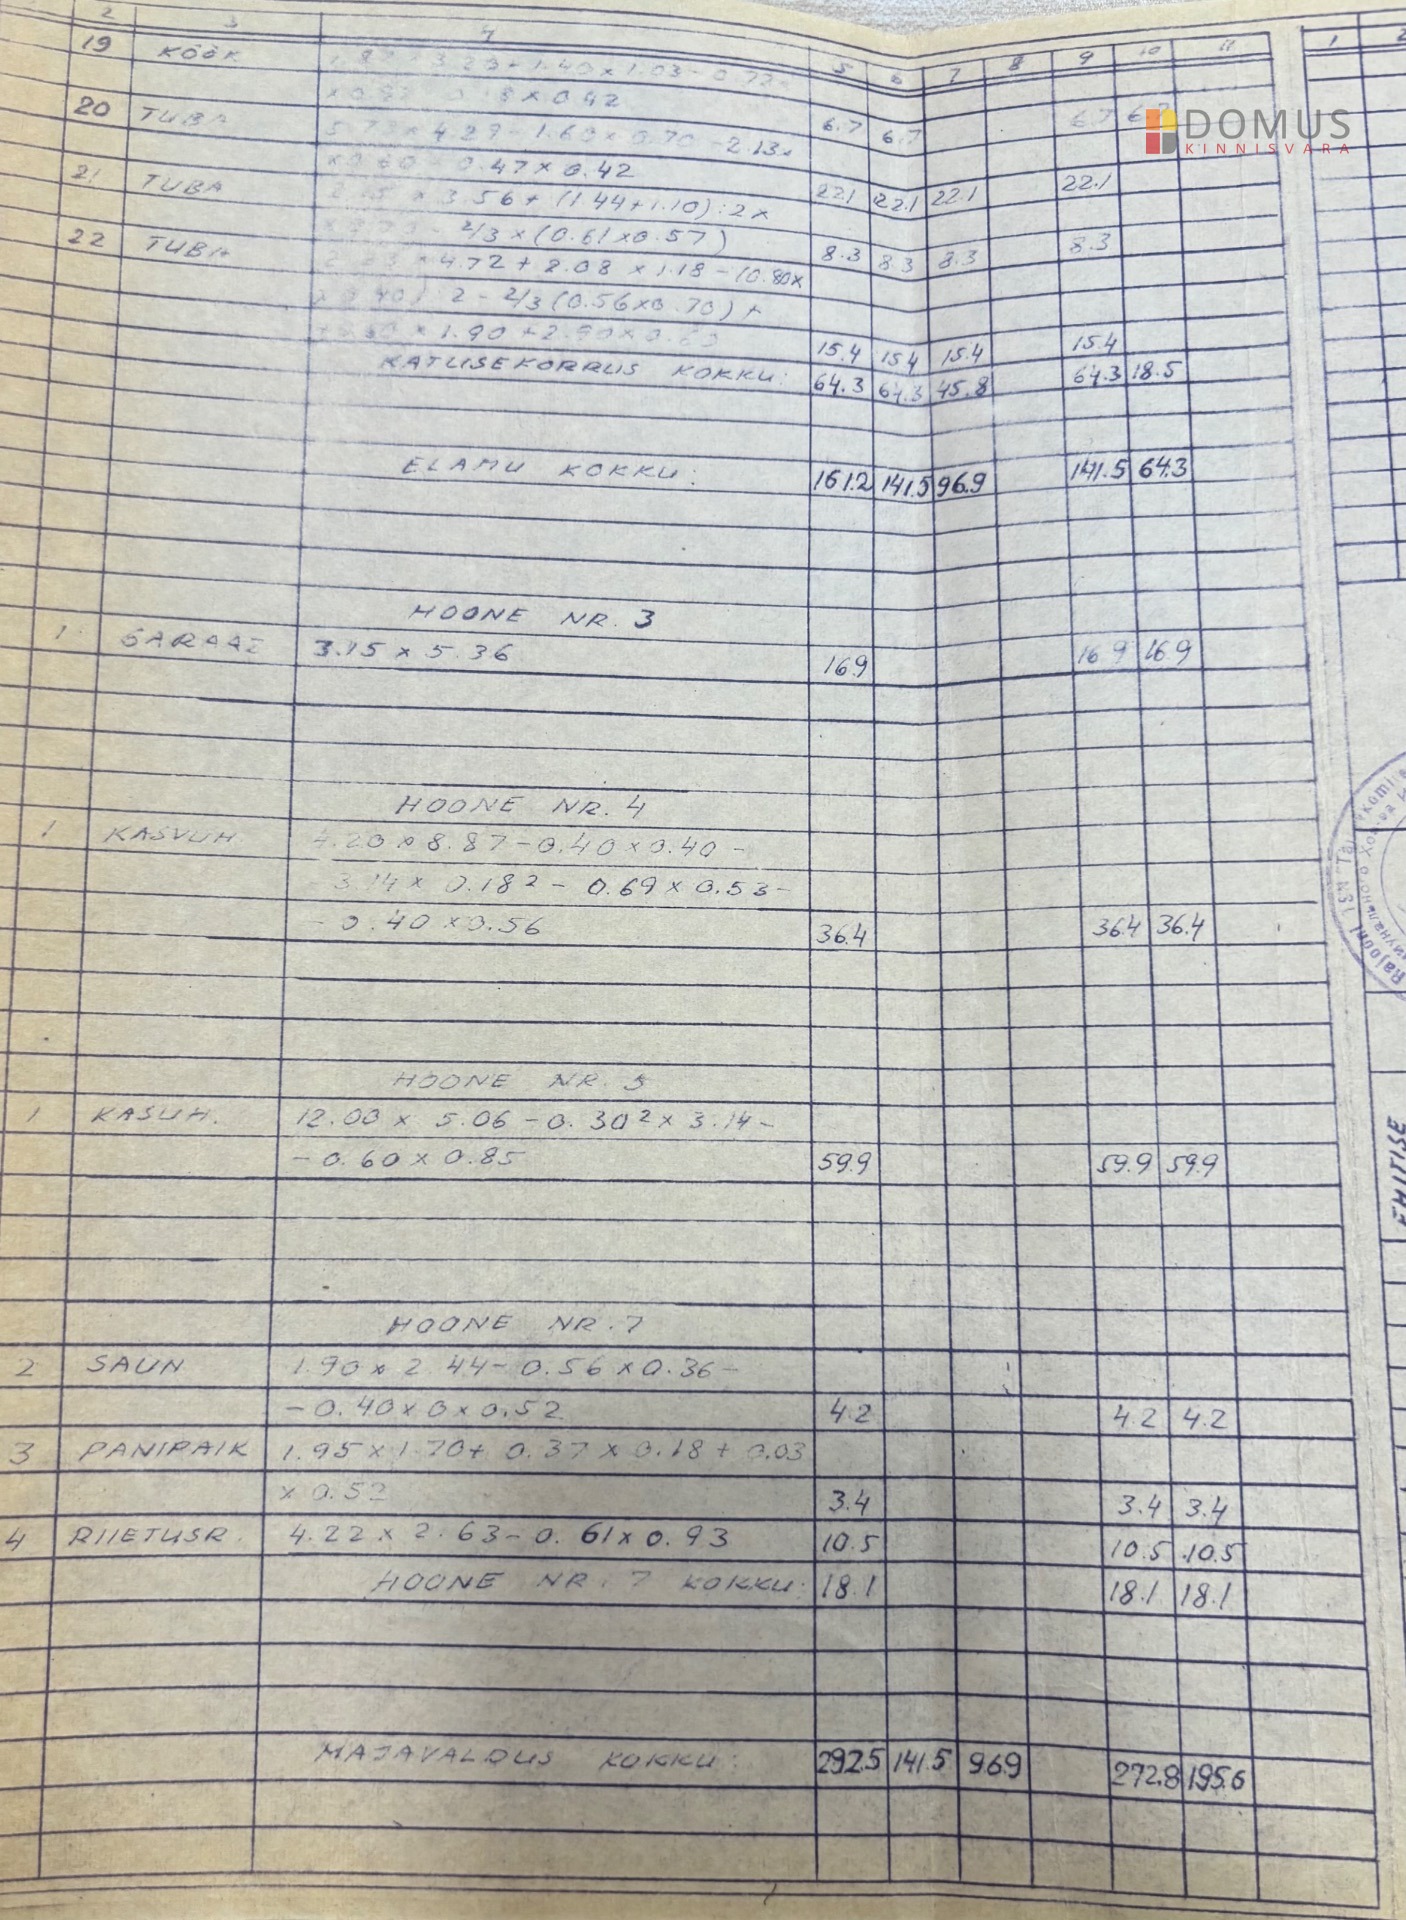 2 3 4 5 6 7 8 9 10 11
19 KÖÖK
x 0.42 6.7 6.7 6.7
20 TUBA 5.73 x 4.29 - 1.60 x 0.70 - 2.13x
0.47 x 0.42 22.1 22.1 22.1 22.1
21 TUBA x 3.56 + (1.44+1.10):2x
2/3 x (0.61 x 0.57) 8.3 8.3 8.3 8.3
22 TUBA x 4.72 + 2.08 x 1.18 - (0.80x
2 - 2/3 (0.56x0.70) +
x 1.90 + 2.90 x 0.63 15.4 15.4 15.4 15.4
KATUSEKORRUS KOKKU: 64.3 64.3 45.8 64.3 18.5
ELAMU KOKKU: 161.2 141.5 96.9 141.5 64.3
HOONE NR. 3
1 GARAAZ 3.15 x 5.36 16.9 16.9 16.9
HOONE NR. 4
1 KASVUH. 4.20 x 8.87 - 0.40 x 0.40 -
3.14 x 0.18² - 0.69 x 0.53 -
- 0.40 x 0.56 36.4 36.4 36.4
HOONE NR. 5
1 KASUH. 12.00 x 5.06 - 0.30² x 3.14 -
- 0.60 x 0.85 59.9 59.9 59.9
HOONE NR. 7
2 SAUN 1.90 x 2.44 - 0.56 x 0.36 -
- 0.40 x 0 x 0.52 4.2 4.2 4.2
3 PANIPAIK 1.95 x 1.70 + 0.37 x 0.18 + 0.03
x 0.52 3.4 3.4 3.4
4 RIIETUSR. 4.22 x 2.63 - 0.61 x 0.93 10.5 10.5 10.5
HOONE NR. 7 KOKKU: 18.1 18.1 18.1
MAJAVALDUS KOKKU: 292.5 141.5 96.9 272.8 195.6
1 2
EHITISE
DOMUS
KINNISVARA